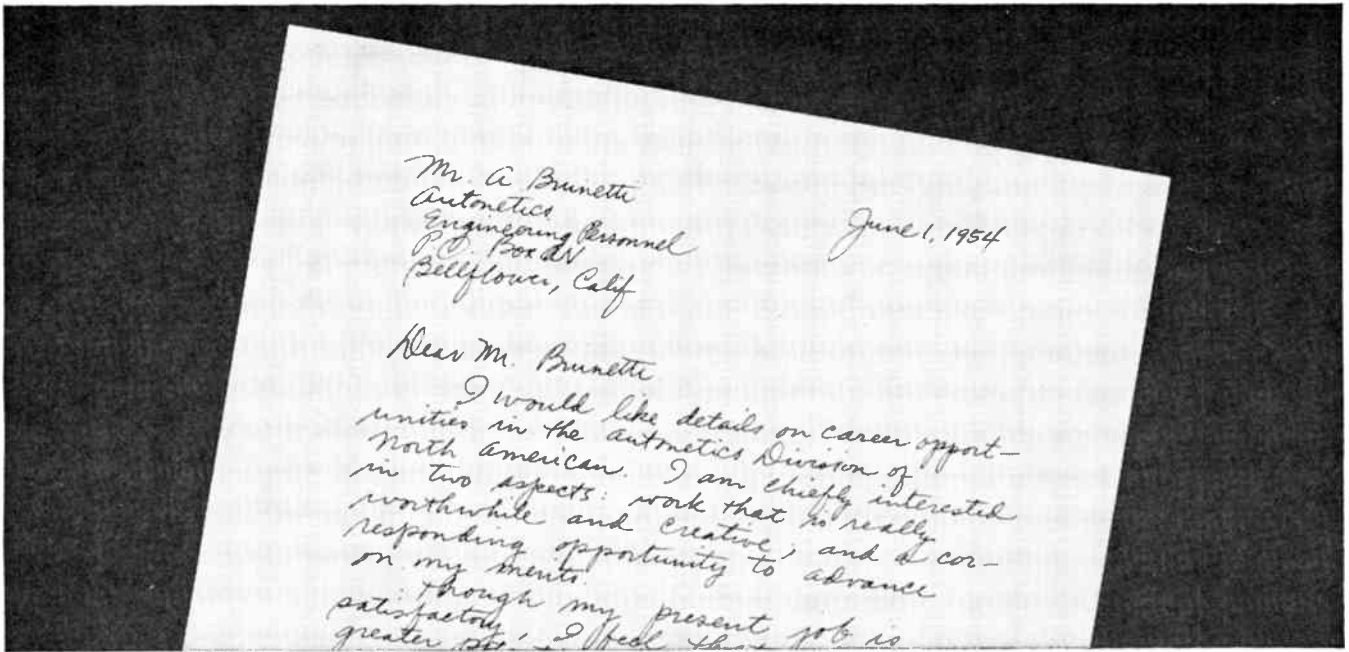 Mr. A Brunetti
Autonetics
Engineering Personnel
P.O. Box AN
Bellflower, Calif
June 1, 1954
Dear Mr. Brunetti
I would like details on career opport-
unities in the Autonetics Division of
North American. I am chiefly interested
in two aspects: work that is really
worthwhile and creative; and a cor-
responding opportunity to advance
on my merits.
though my present job is
satisfactory, I feel
greater